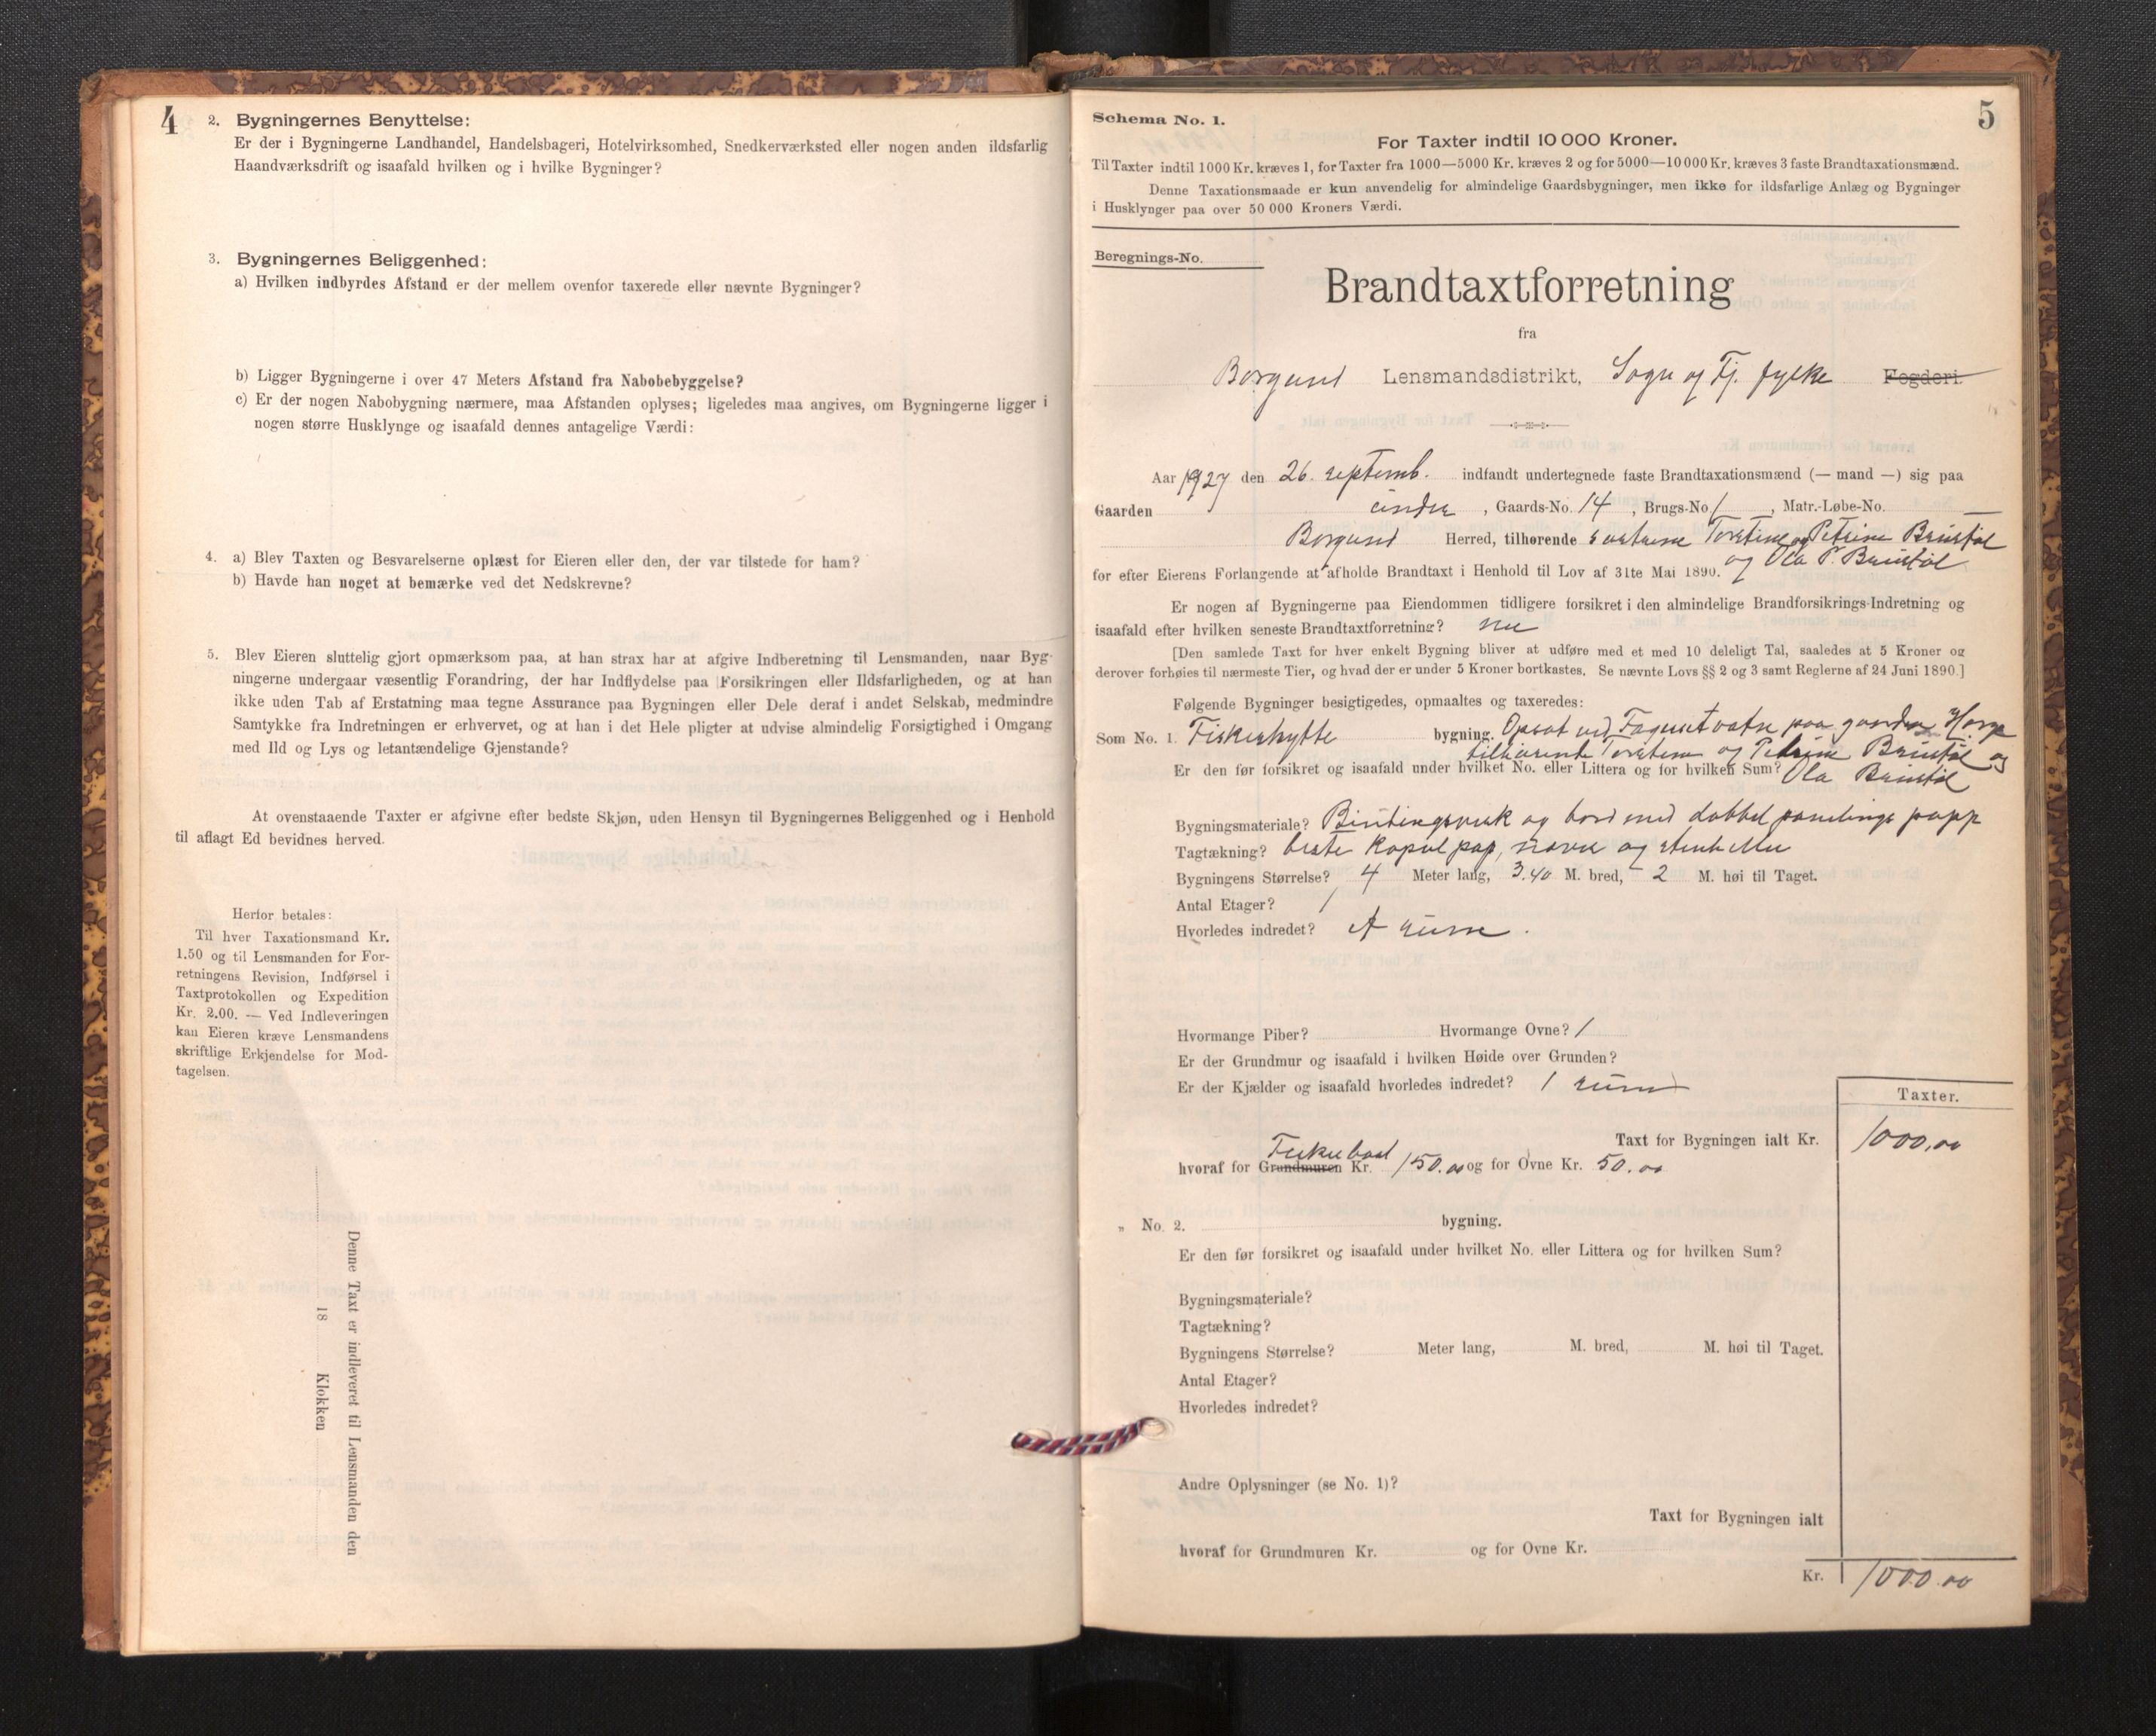 4
2. Bygningernes Benyttelse:
Er der i Bygningerne Landhandel, Handelsbageri, Hotelvirksomhed, Snedkerværksted eller nogen anden ildsfarlig
Haandværksdrift og isaafald hvilken og i hvilke Bygninger?
3. Bygningernes Beliggenhed:
a) Hvilken indbyrdes Afstand er der mellem ovenfor taxerede eller nævnte Bygninger?
b) Ligger Bygningerne i over 47 Meters Afstand fra Nabobebyggelse?
c) Er der nogen Nabobygning nærmere, maa Afstanden oplyses; ligeledes maa angives, om Bygningerne ligger i
nogen større Husklynge og isaafald dennes antagelige Værdi:
4. a) Blev Taxten og Besvarelserne oplæst for Eieren eller den, der var tilstede for ham?
b) Havde han noget at bemærke ved det Nedskrevne?
5. Blev Eieren sluttelig gjort opmærksom paa, at han strax har at afgive Indberetning til Lensmanden, naar Byg-
ningerne undergaar væsentlig Forandring, der har Indflydelse paa Forsikringen eller Ildsfarligheden, og at han
ikke uden Tab af Erstatning maa tegne Assurance paa Bygningen eller Dele deraf i andet Selskab, medmindre
Samtykke fra Indretningen er erhvervet, og at han i det Hele pligter at udvise almindelig Forsigtighed i Omgang
med Ild og Lys og letantændelige Gjenstande?
At ovenstaaende Taxter er afgivne efter bedste Skjøn, uden Hensyn til Bygningernes Beliggenhed og i Henhold
til aflagt Ed bevidnes herved.
Herfor betales:
Til hver Taxationsmand Kr.
1.50 og til Lensmanden for For-
retningens Revision, Indførsel i
Taxtprotokollen og Expedition
Kr. 2.00. — Ved Indleveringen
kan Eieren kræve Lensmandens
skriftlige Erkjendelse for Mod-
tagelsen.
Denne Taxt er indleveret til Lensmanden den
18 Klokken
5
Schema No. 1.
For Taxter indtil 10 000 Kroner.
Til Taxter indtil 1000 Kr. kræves 1, for Taxter fra 1000—5000 Kr. kræves 2 og for 5000—10 000 Kr. kræves 3 faste Brandtaxationsmænd.
Denne Taxationsmaade er kun anvendelig for almindelige Gaardsbygninger, men ikke for ildsfarlige Anlæg og Bygninger
i Husklynger paa over 50 000 Kroners Værdi.
Beregnings-No.
Brandtaxtforretning
fra
Borgund Lensmandsdistrikt, Sogn og Fj. fylke Fogderi.
Aar 1927 den 26. septemb. indfandt undertegnede faste Brandtaxationsmænd (— mand —) sig paa
Gaarden , Gaards-No. 14, Brugs-No. 1, Matr.-Løbe-No.
Borgund Herred, tilhørende Torsteine og Petrine Brustøl
og Ola P. Brustøl
for efter Eierens Forlangende at afholde Brandtaxt i Henhold til Lov af 31te Mai 1890.
Er nogen af Bygningerne paa Eiendommen tidligere forsikret i den almindelige Brandforsikrings-Indretning og
isaafald efter hvilken seneste Brandtaxtforretning? nei
[Den samlede Taxt for hver enkelt Bygning bliver at udføre med et med 10 deleligt Tal, saaledes at 5 Kroner og
derover forhøies til nærmeste Tier, og hvad der er under 5 Kroner bortkastes. Se nævnte Lovs §§ 2 og 3 samt Reglerne af 24 Juni 1890.]
Følgende Bygninger besigtigedes, opmaaltes og taxeredes:
Som No. 1. Fiskerhytte bygning. Opsat ved paa gaarden
tilhørende Torsteine og Petrine Brustøl og
Er den før forsikret og isaafald under hvilket No. eller Littera og for hvilken Sum? Ola Brustøl
Bygningsmateriale? Bindingsverk og bord med dobbel panelings papp
Tagtækning? beste pap, never og stenheller
Bygningens Størrelse? 4 Meter lang, 3.40 M. bred, 2 M. høi til Taget.
Antal Etager? 1
Hvorledes indredet? rum.
Hvormange Piber? Hvormange Ovne? 1
Er der Grundmur og isaafald i hvilken Høide over Grunden?
Er der Kjælder og isaafald hvorledes indredet? 1 rum
Taxter.
Taxt for Bygningen ialt Kr. 1000,00
Fiskebaad
hvoraf for Grundmuren Kr. 150.00 og for Ovne Kr. 50.00
„ No. 2. bygning.
Er den før forsikret og isaafald under hvilket No. eller Littera og for hvilken Sum?
Bygningsmateriale?
Tagtækning?
Bygningens Størrelse? Meter lang, M. bred, M. høi til Taget.
Antal Etager?
Hvorledes indredet?
Andre Oplysninger (se No. 1)?
Taxt for Bygningen ialt
hvoraf for Grundmuren Kr. og for Ovne Kr.
Kr. 1000.00